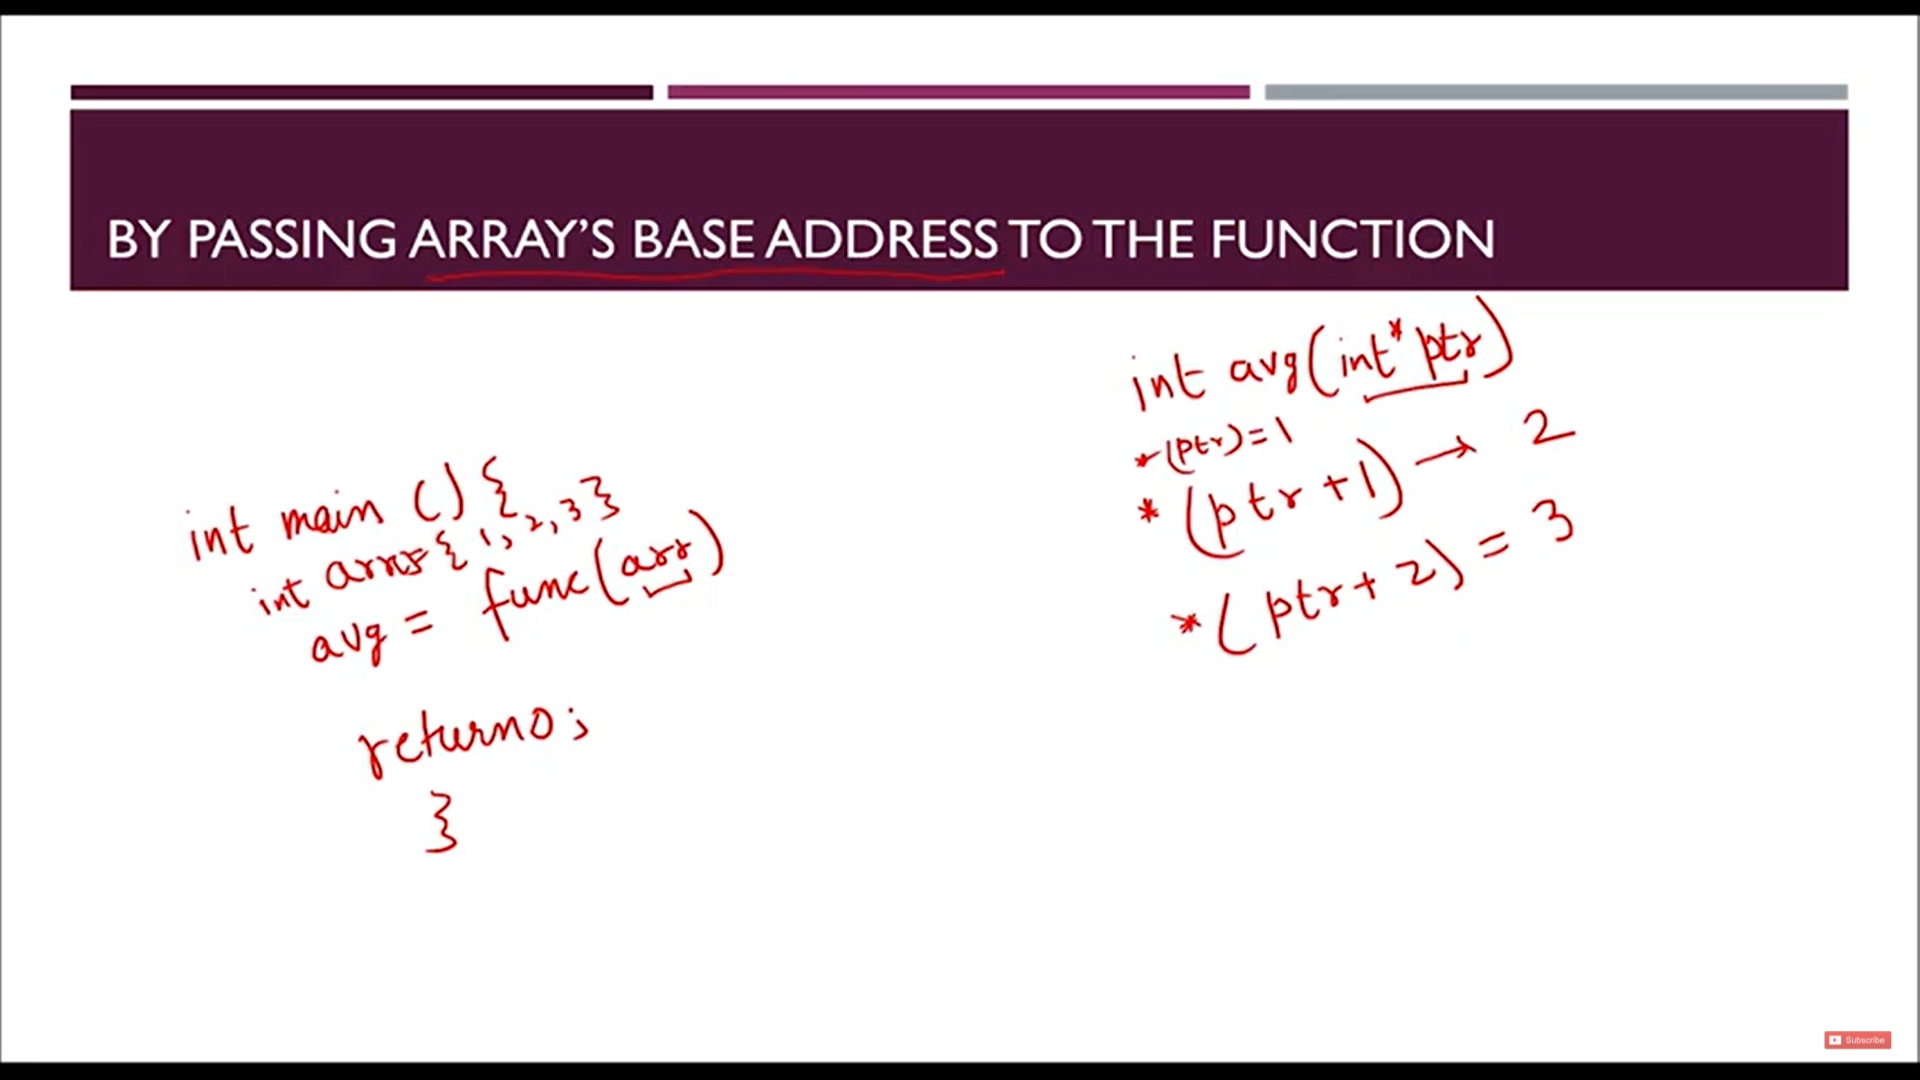 BY PASSING ARRAY'S BASE ADDRESS TO THE FUNCTION
int main () {
int arr={1,2,3}
avg = func(arr)
return0;
}
int avg(int* ptr)
*(ptr)=1
*(ptr+1) → 2
*(ptr+2) = 3
Subscribe